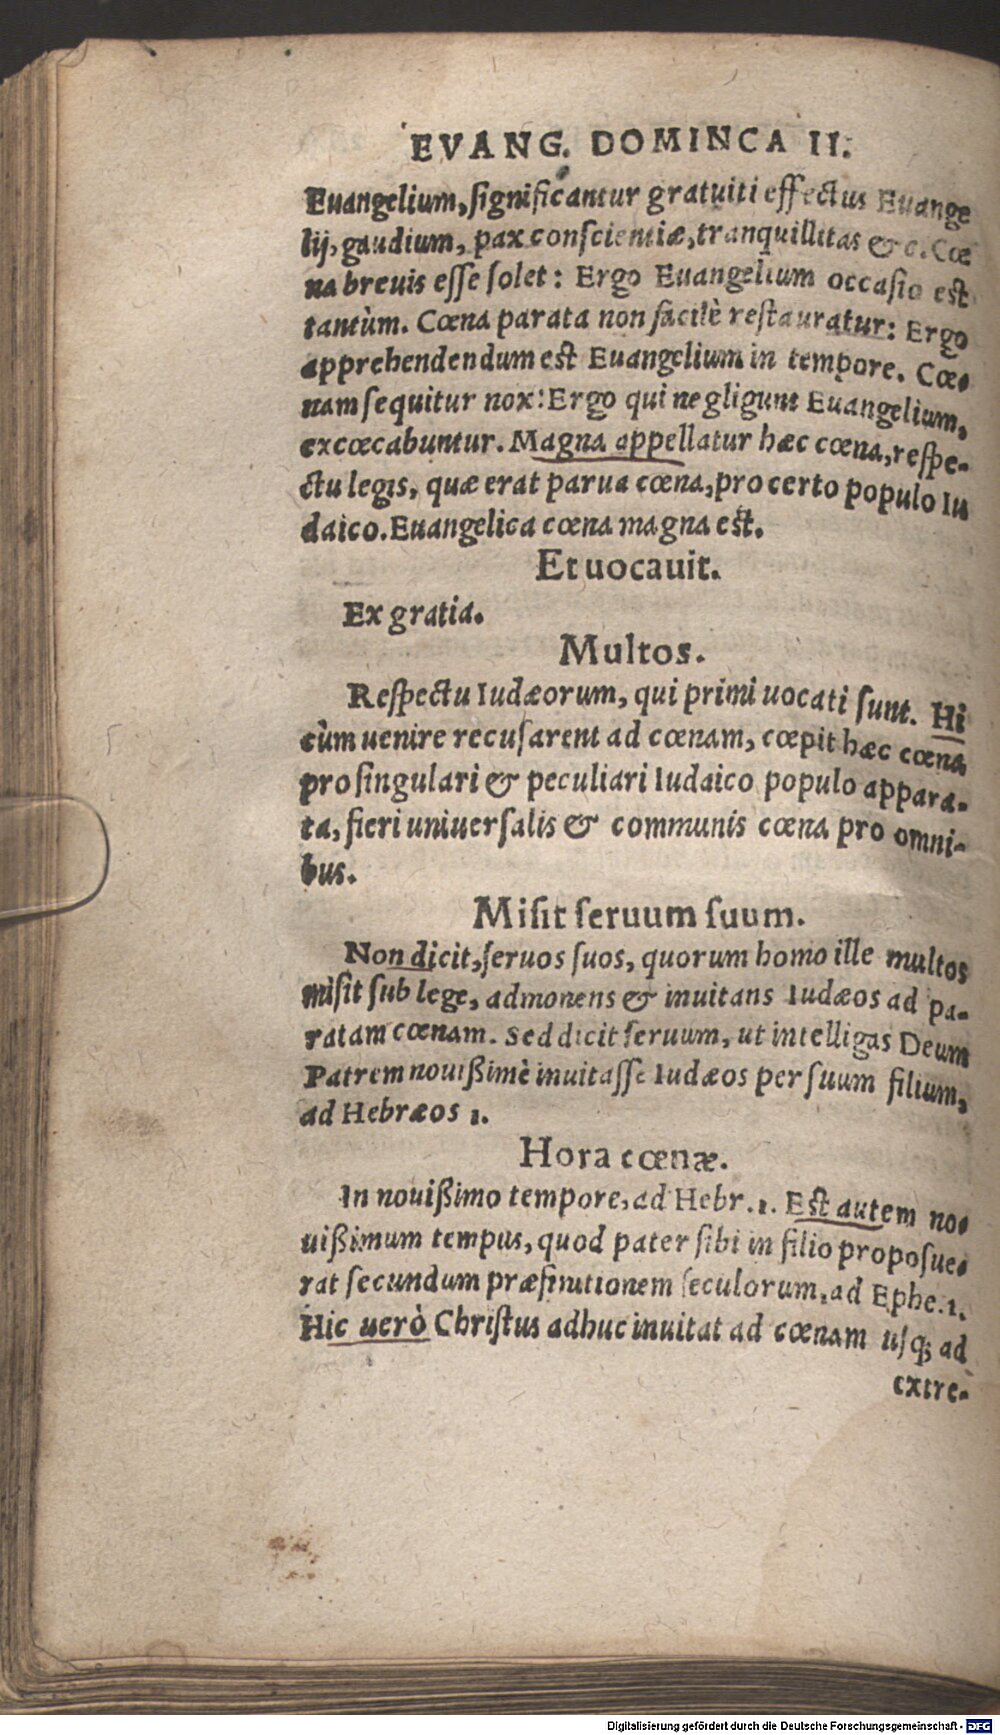 EVANG. DOMINCA II.
Euangelium, significantur gratuiti effectus Euange
lij, gaudium, pax conscientiæ, tranquillitas &c. Cœ
na breuis esse solet: Ergo Euangelium occasio est
tantùm. Cœna parata non facilè restauratur: Ergo
apprehendendum est Euangelium in tempore. Cœ-
nam sequitur nox: Ergo qui negligunt Euangelium,
excœcabuntur. Magna appellatur hæc cœna, respe-
ctu legis, quæ erat parua cœna, pro certo populo Iu
daico. Euangelica cœna magna est.
Et uocauit.
Ex gratia.
Multos.
Respectu Iudæorum, qui primi uocati sunt. Hi
cùm uenire recusarent ad cœnam, cœpit hæc cœna
pro singulari & peculiari Iudaico populo appara-
ta, fieri uniuersalis & communis cœna pro omni-
bus.
Misit seruum suum.
Non dicit, seruos suos, quorum homo ille multos
misit sub lege, admonens & inuitans Iudæos ad pa-
ratam cœnam. Sed dicit seruum, ut intelligas Deum
Patrem nouißimè inuitasse Iudæos per suum filium,
ad Hebræos 1.
Hora cœnæ.
In nouißimo tempore, ad Hebr. 1. Est autem no-
uißimum tempus, quod pater sibi in filio proposue-
rat secundum præfinitionem seculorum, ad Ephe. 1.
Hic uerò Christus adhuc inuitat ad cœnam usq; ad
extre-
Digitalisierung gefördert durch die Deutsche Forschungsgemeinschaft - DFG